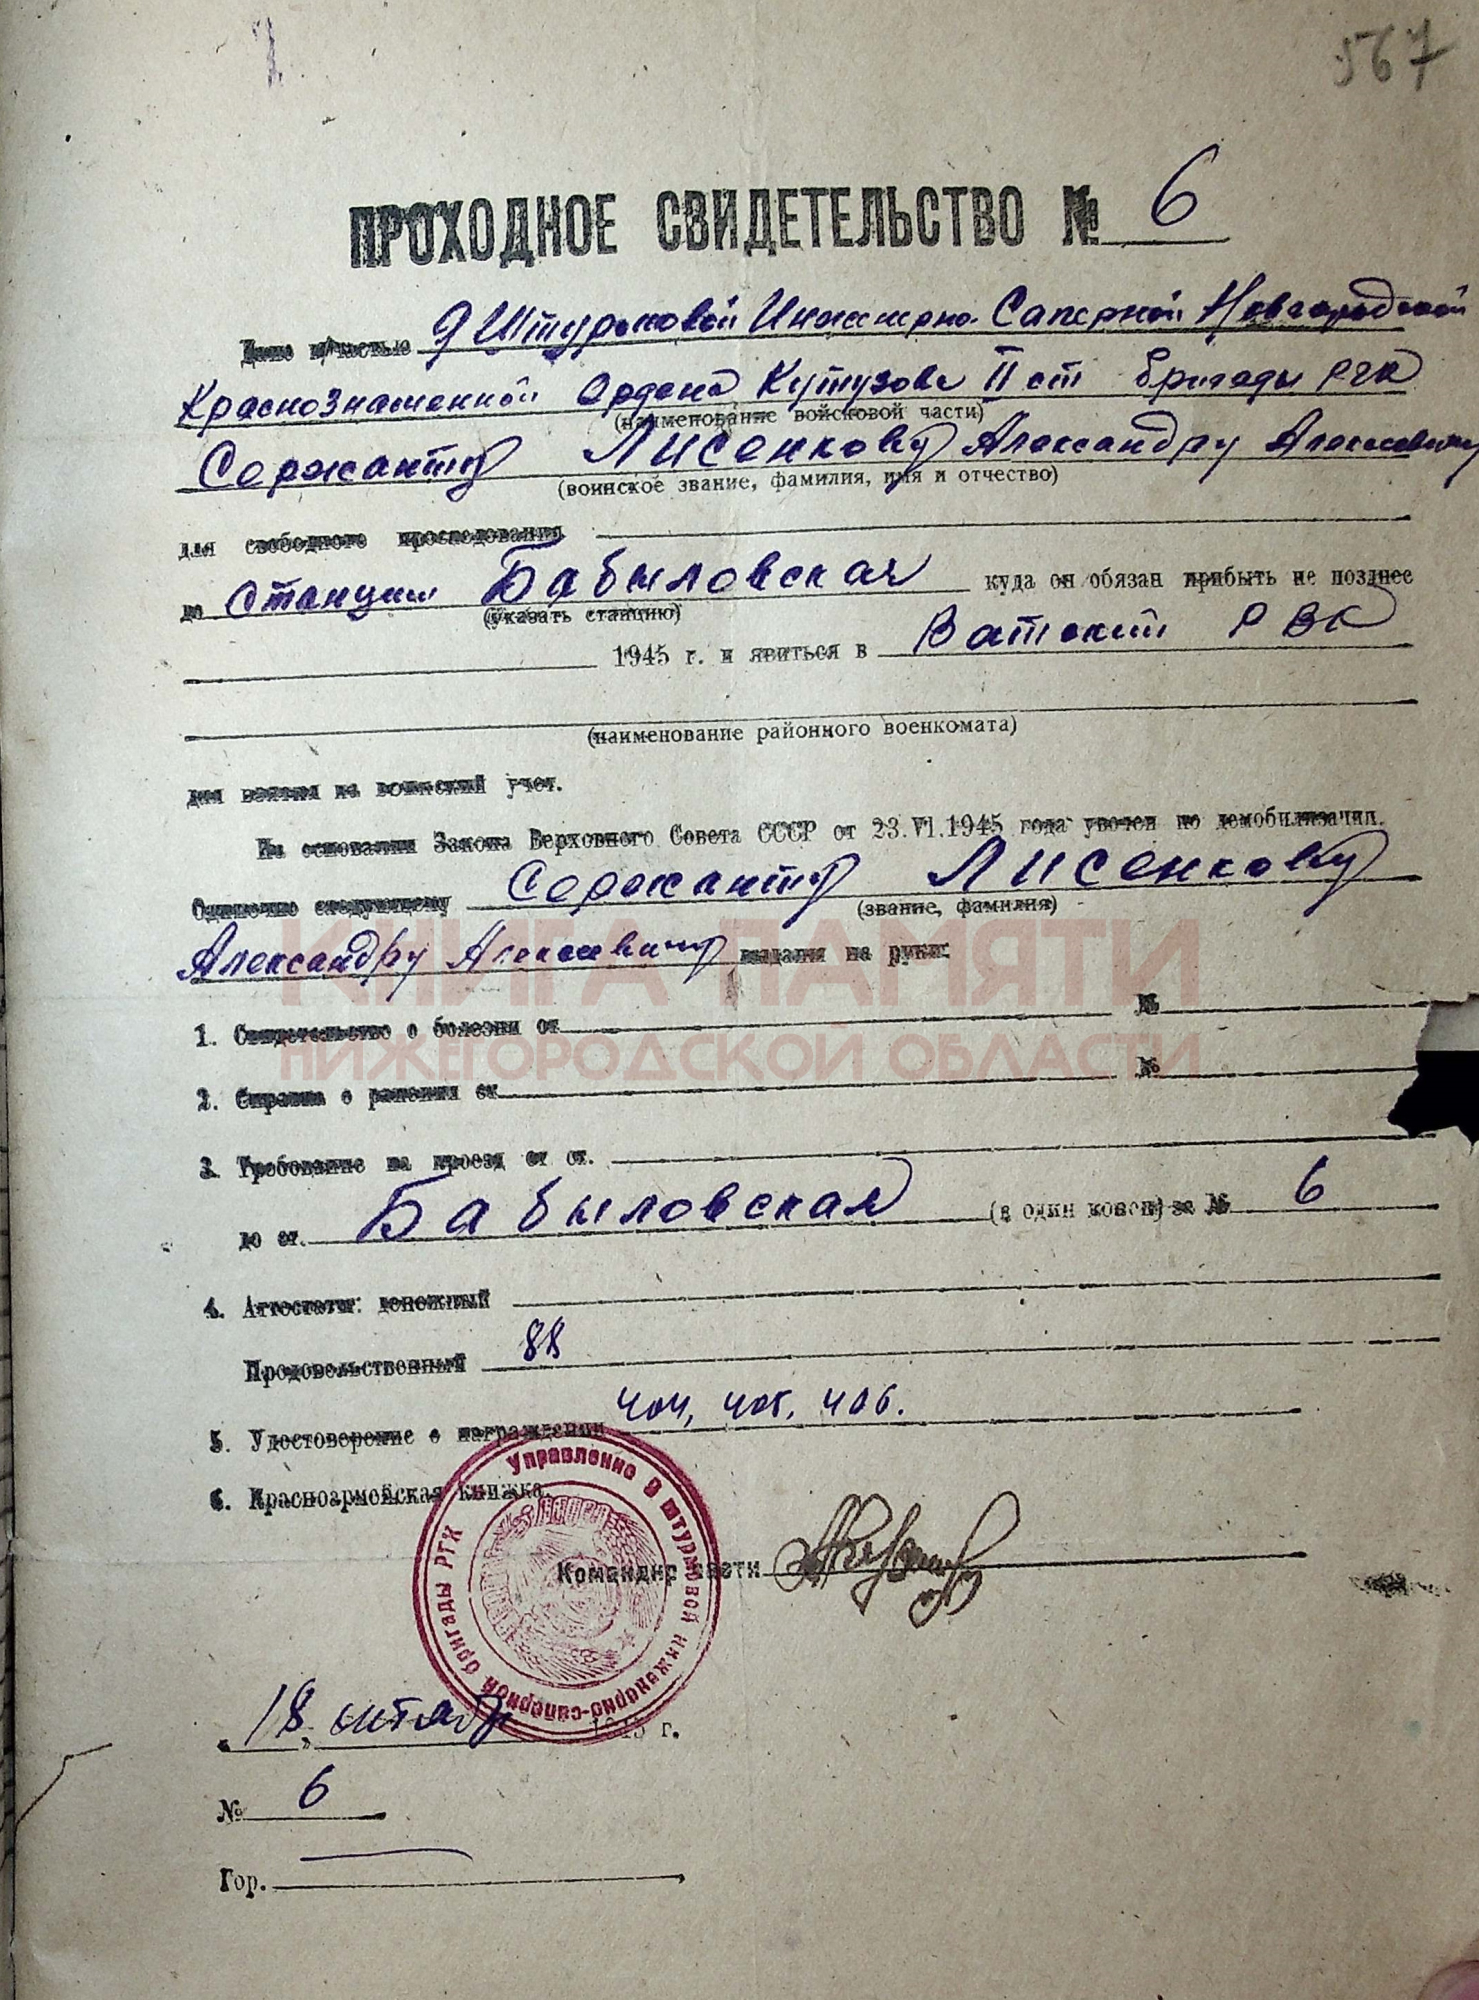 567
ПРОХОДНОЕ СВИДЕТЕЛЬСТВО № 6
Дано в/частью 9 Штурмовой Инженерно-Саперной Новгородской
Краснознаменной Ордена Кутузова II ст Бригады РГК
(наименование войсковой части)
Сержанту Лисенкову Александру Алексеевичу
(воинское звание, фамилия, имя и отчество)
для свободного проследования
до Станции Бабыловская куда он обязан прибыть не позднее
(указать станцию)
1945 г. и явиться в Ватский РВК
(наименование районного военкомата)
для взятия на воинский учет.
На основании Закона Верховного Совета СССР от 23.VI.1945 года уволен по демобилизации.
Одиночно следующему Сержанту Лисенкову
(звание, фамилия)
Александру Алексеевичу выданы на руки:
КНИГА ПАМЯТИ
НИЖЕГОРОДСКОЙ ОБЛАСТИ
1. Свидетельство о болезни от №
2. Справка о ранении от №
3. Требование на проезд от ст.
до ст. Бабыловская (в один конец) за № 6
4. Аттестаты: денежный
Продовольственный 88
5. Удостоверение о награждении 404, 405, 406.
6. Красноармейская книжка.
Управление 9 штурмовой инженерно-саперной бригады РГК
Командир части
„18„ октября 1945 г.
№ 6
Гор.